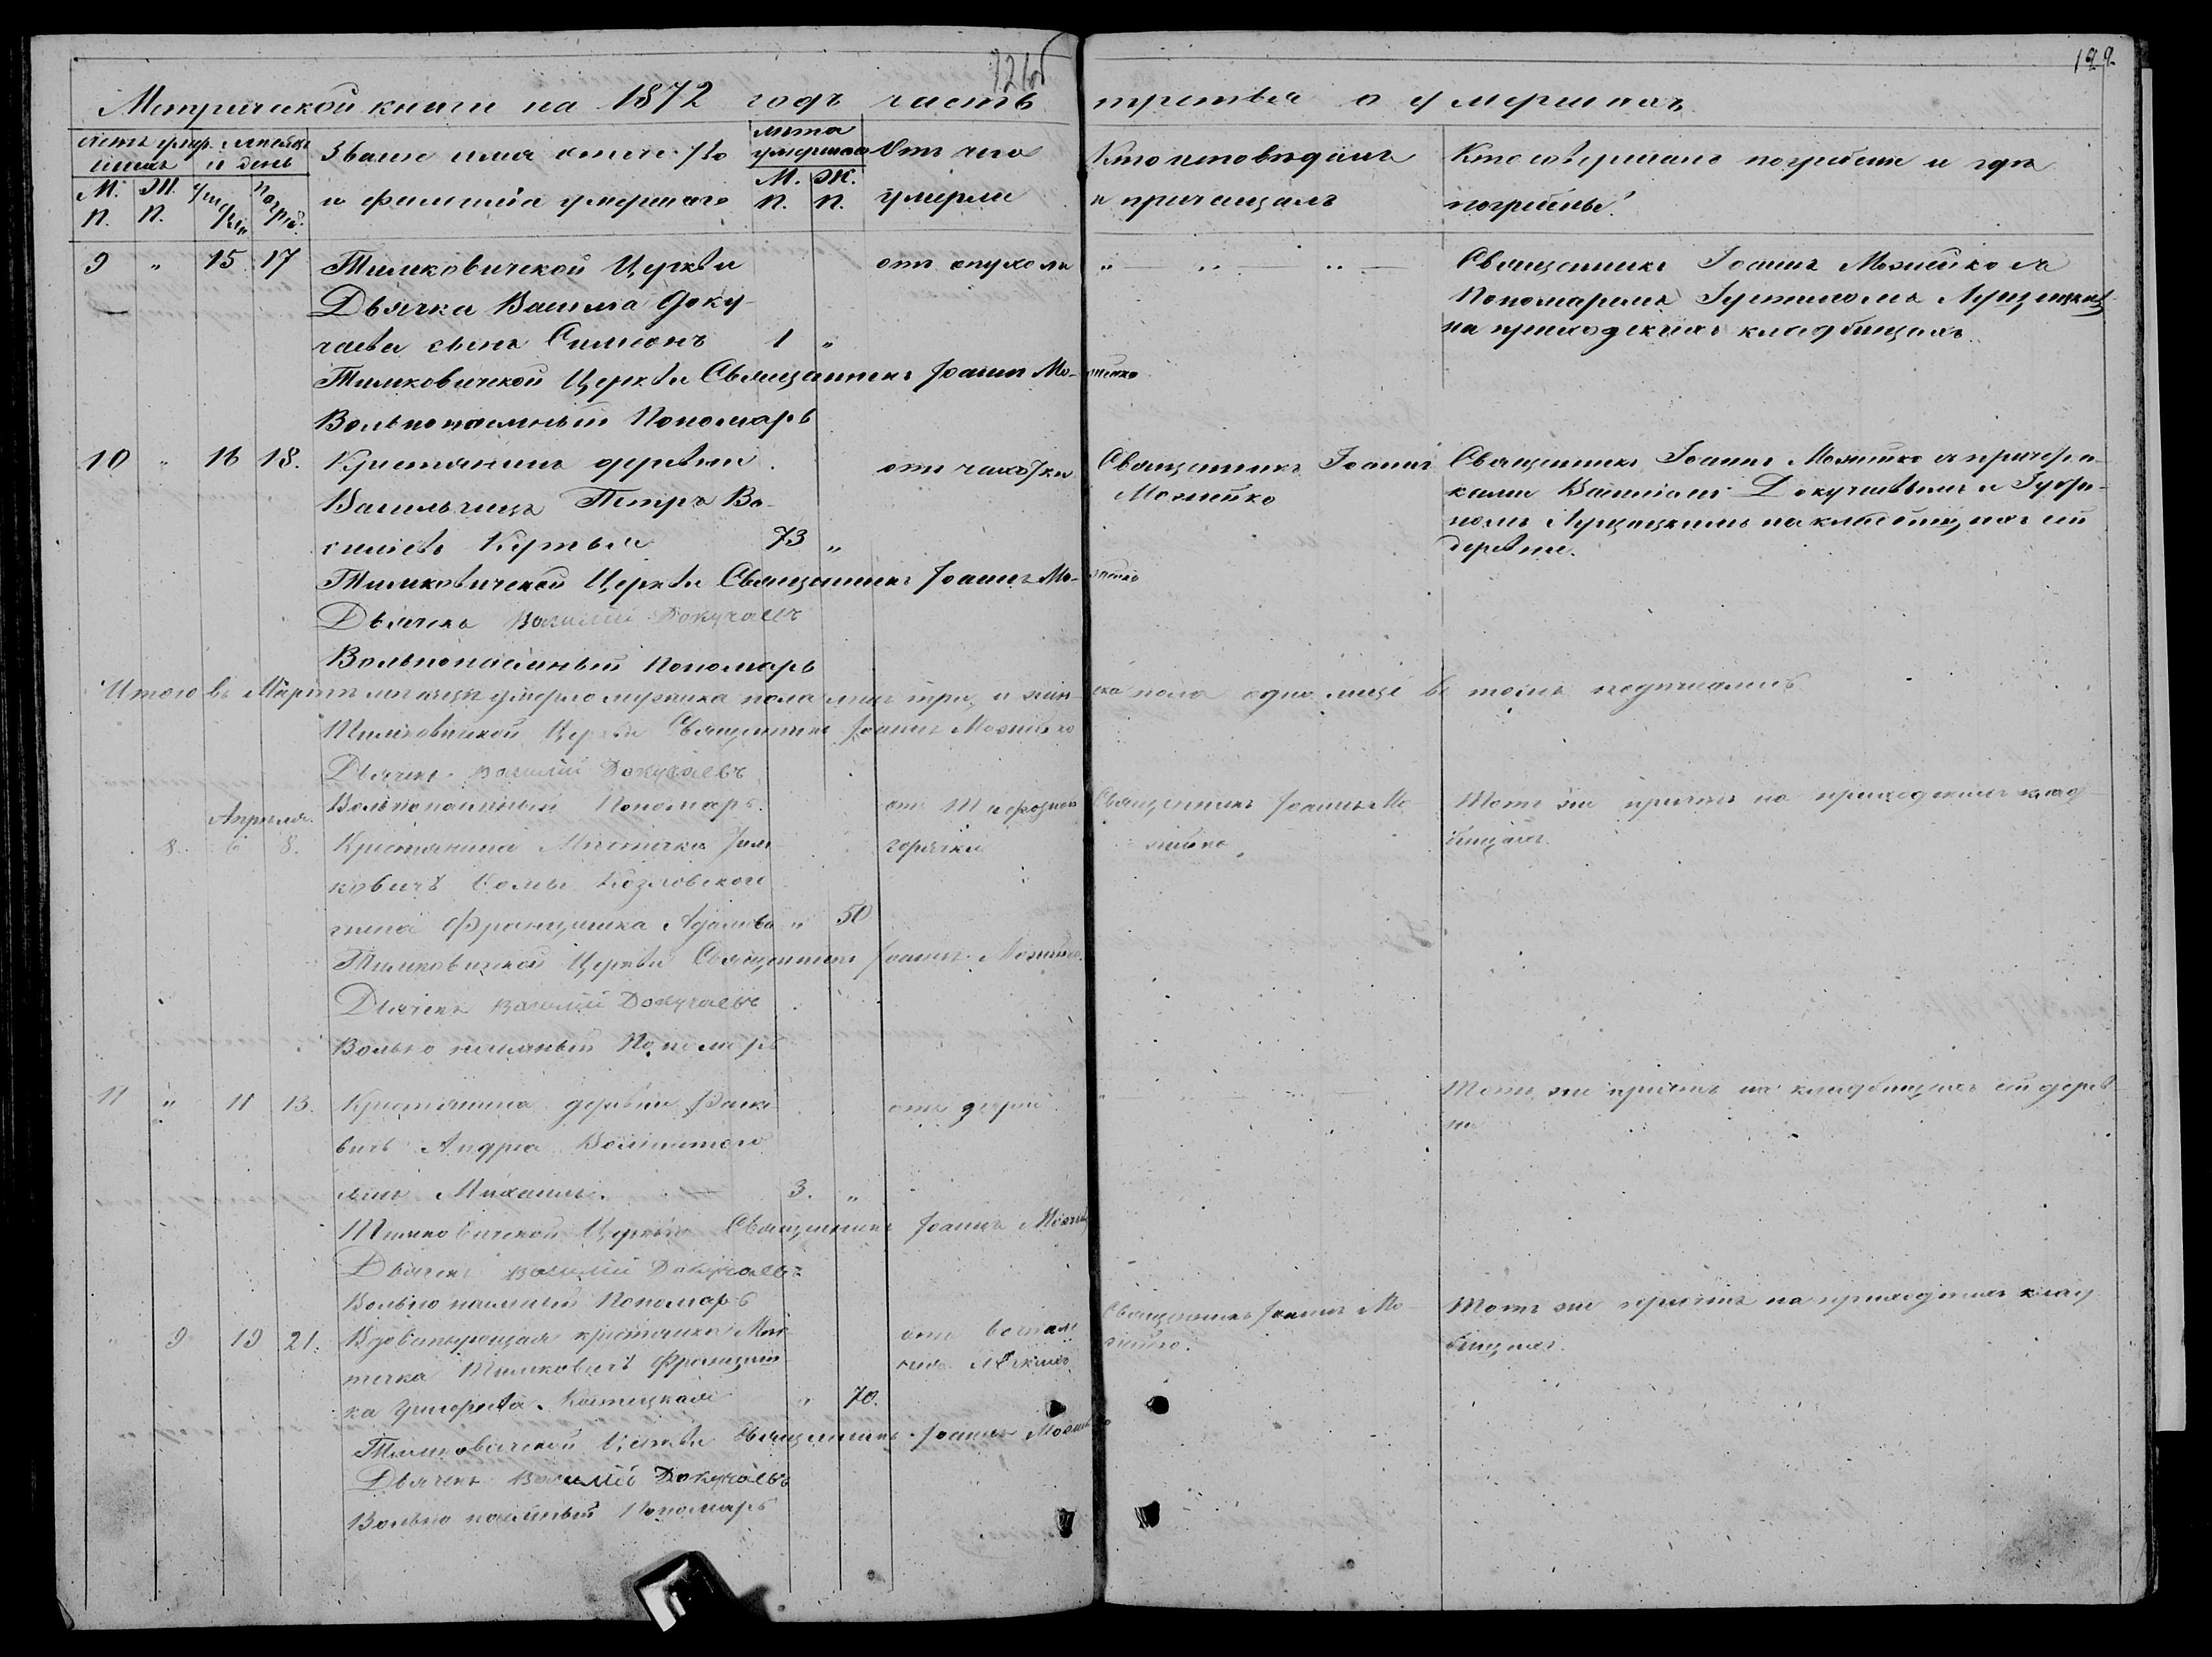 122
Метрической книги на 1872 годъ часть третья о умершихъ
счетъ умер. мѣсяцъ и день
М. п. Ж. п.
Званіе имя отчество и фамилія умершаго
лѣта умершаго
М. п. Ж. п.
Отъ чего умерли
Кто исповѣдалъ и причащалъ
Кто совершалъ погребеніе и гдѣ погребены
9 " 15 17 Тимковичской Церкви
Дьячка Василія Доку-
чаева сынъ Симеонъ 1 "
отъ опухоли
" — " — " —
Священникъ Іоаннъ Можейко съ
Пономаремъ Лущицкимъ
на приходскихъ кладбищахъ.
Тимковичской Церкви Священникъ Іоаннъ Можейко
Вольнонаемный Пономарь
10 " 16 18. Крестьянинъ деревни
Василь­чицъ Петръ Ва-
сильевъ 73 "
отъ чахотки
Священникъ Іоаннъ
Можейко
Священникъ Іоаннъ Можейко съ причетни-
ками Василіемъ Докучаевымъ и
Лущицкимъ на кладбищахъ сей
деревни.
Тимковичской Церкви Священникъ Іоаннъ Можейко
Дьячекъ Василій Докучаевъ
Вольнонаемный Пономарь
Итого въ Мартѣ мѣсяцѣ умерло мужеска пола лицъ три, и жен-
ска пола одно лице въ томъ подписались
Тимковичской Церкви Священникъ Іоаннъ Можейко
Дьячекъ Василій Докучаевъ
Вольнонаемный Пономарь.
Апрѣля.
" 8. 6 8. Крестьянина Мѣстечка Тим-
ковичъ Ѳомы Козловского
жена Францишка Адамова " 50
отъ
горячки
Священникъ Іоаннъ Мо-
жейко
Тотъ же причтъ на приходскихъ клад-
бищахъ.
Тимковичской Церкви Священникъ Іоаннъ Можейко.
Дьячекъ Василій Докучаевъ
Вольнонаемный Пономарь
11 " 11 13. Крестьянина деревни
Андрея
сынъ Михаилъ. — 3. "
отъ
" — " —
Тотъ же причтъ на кладбищахъ сей дерев-
ни
Тимковичской Церкви Священникъ Іоаннъ Можейко
Дьячекъ Василій Докучаевъ
Вольнонаемный Пономарь
" 9 19 21. Вдовствующая крестьянка Мѣс-
течка Тимковичъ Францишка
" 70.
отъ воспале-
нія легкихъ
Священникъ Іоаннъ Мо-
жейко.
Тотъ же причтъ на приходскихъ клад-
бищахъ.
Тимковичской Церкви Священникъ Іоаннъ Можейко
Дьячекъ Василій Докучаевъ
Вольнонаемный Пономарь